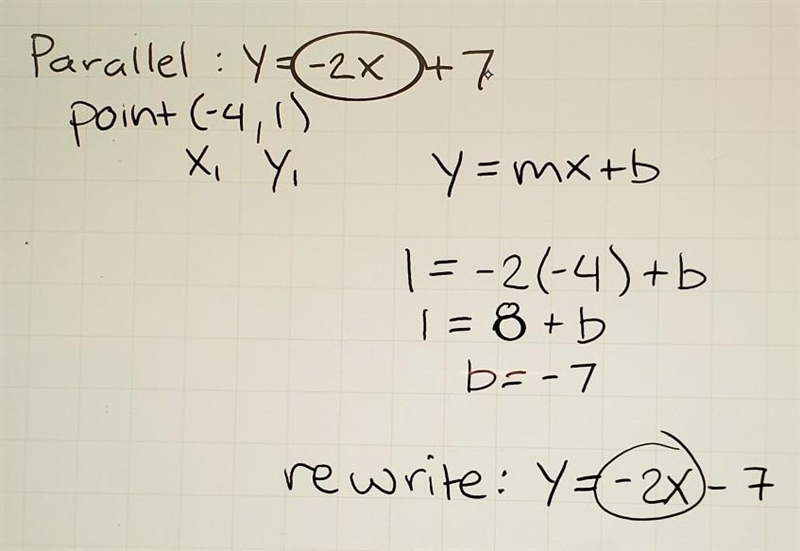 Parallel: y=-2x+7
point (-4,1)
x₁ y₁
y=mx+b
1=-2(-4)+b
1=8+b
b=-7
rewrite: y=-2x-7